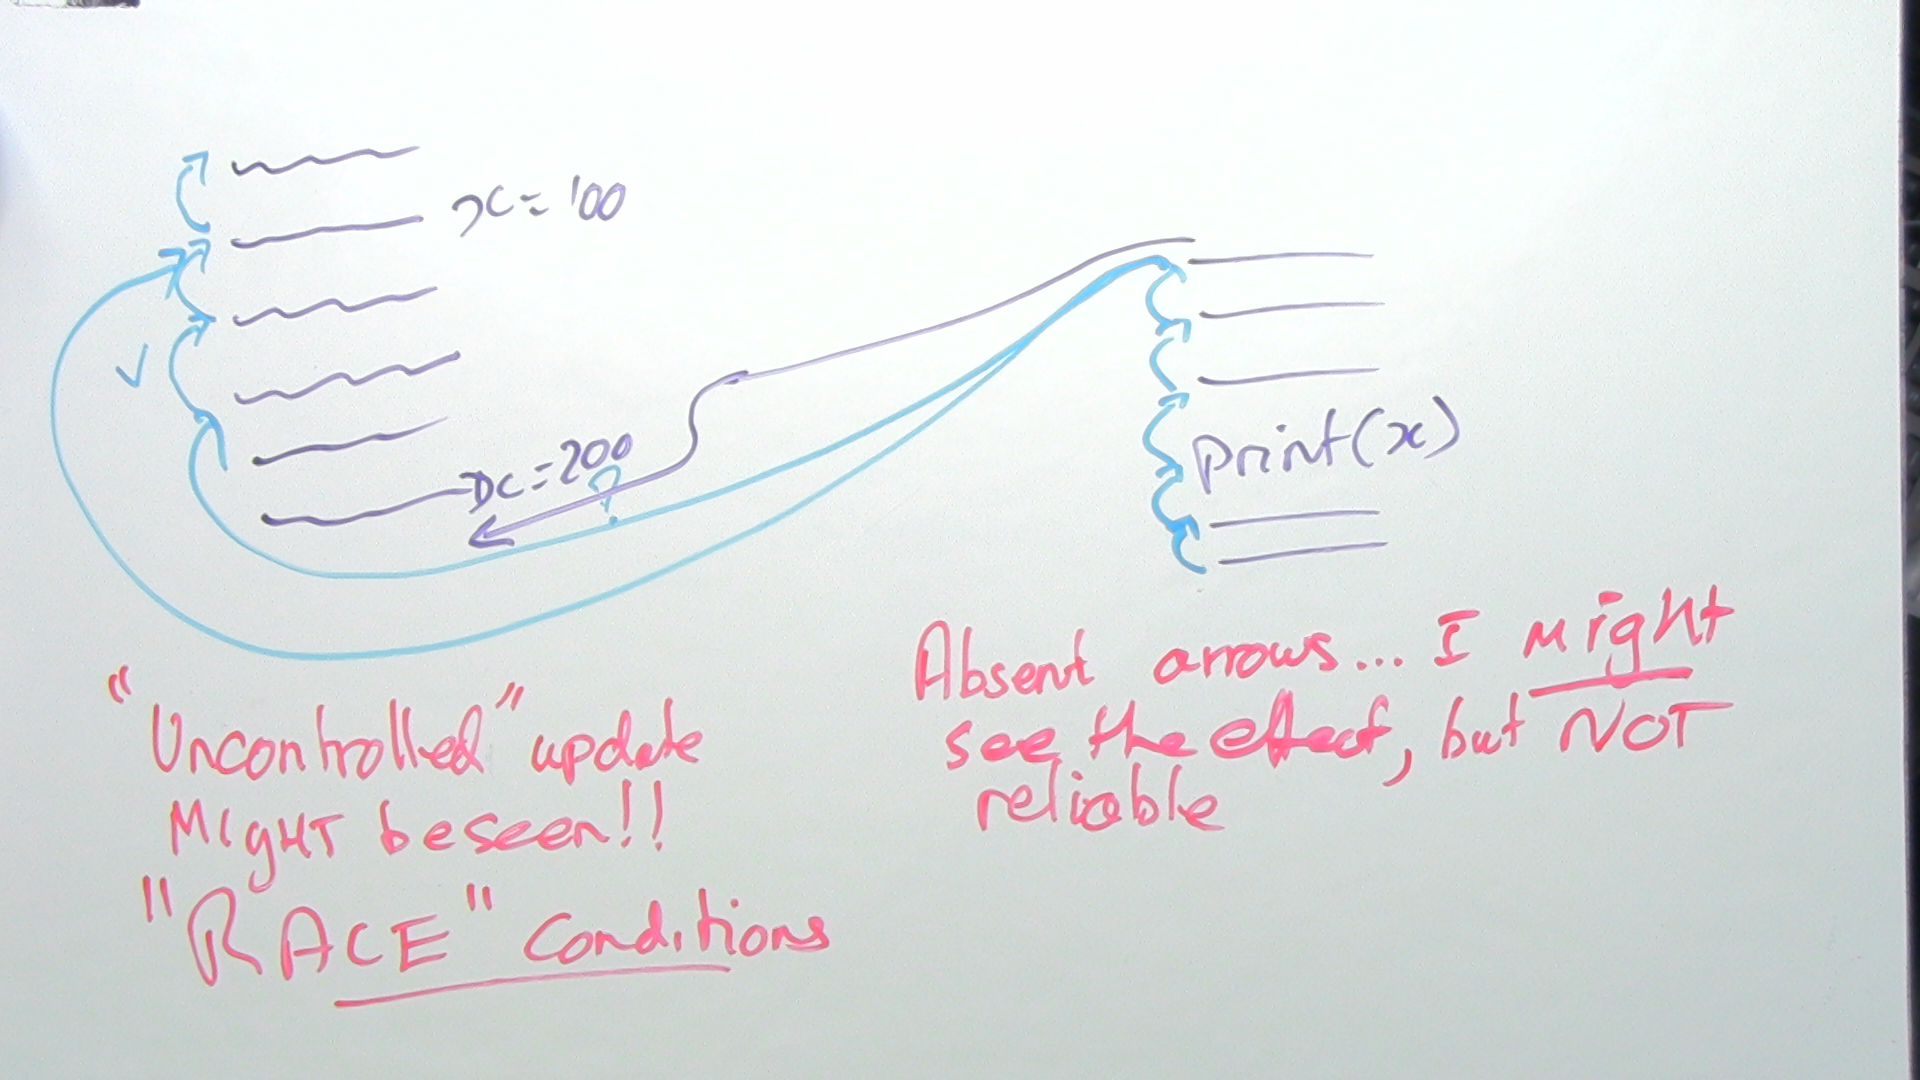 x = 100
x = 200
?
print(x)
"Uncontrolled" update
MigHT be seen!!
"RACE" Conditions
Absent arrows... I Might
see the effect, but NOT
reliable